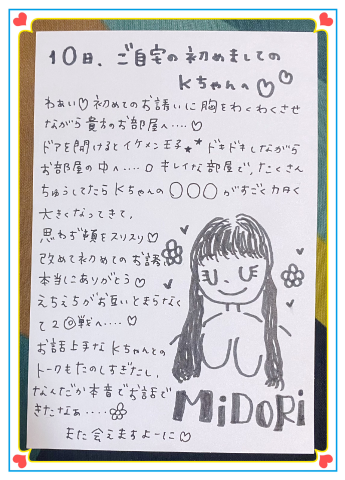 10日、ご自宅の初めましての
Kちゃんへ♡♡
わぁい♡初めてのお誘いに胸をわくわくさせ
ながら貴方のお部屋へ‥‥♡
ドアを開けるとイケメン王子★★ドキドキしながら
お部屋の中へ‥‥。キレイな部屋で、たくさん
ちゅうしてたらKちゃんの〇〇〇がすごくカタく
大きくなってきて、
思わず頬をスリスリ♡
改めて初めてのお誘い
本当にありがとう♡
えちえちがお互いとまらなく
て2回戦へ‥‥♡
お話上手なKちゃんとの
トークもたのしすぎたし、
なんだか本音でお話で
きたなぁ‥‥
また会えますよーに♡
MiDORi